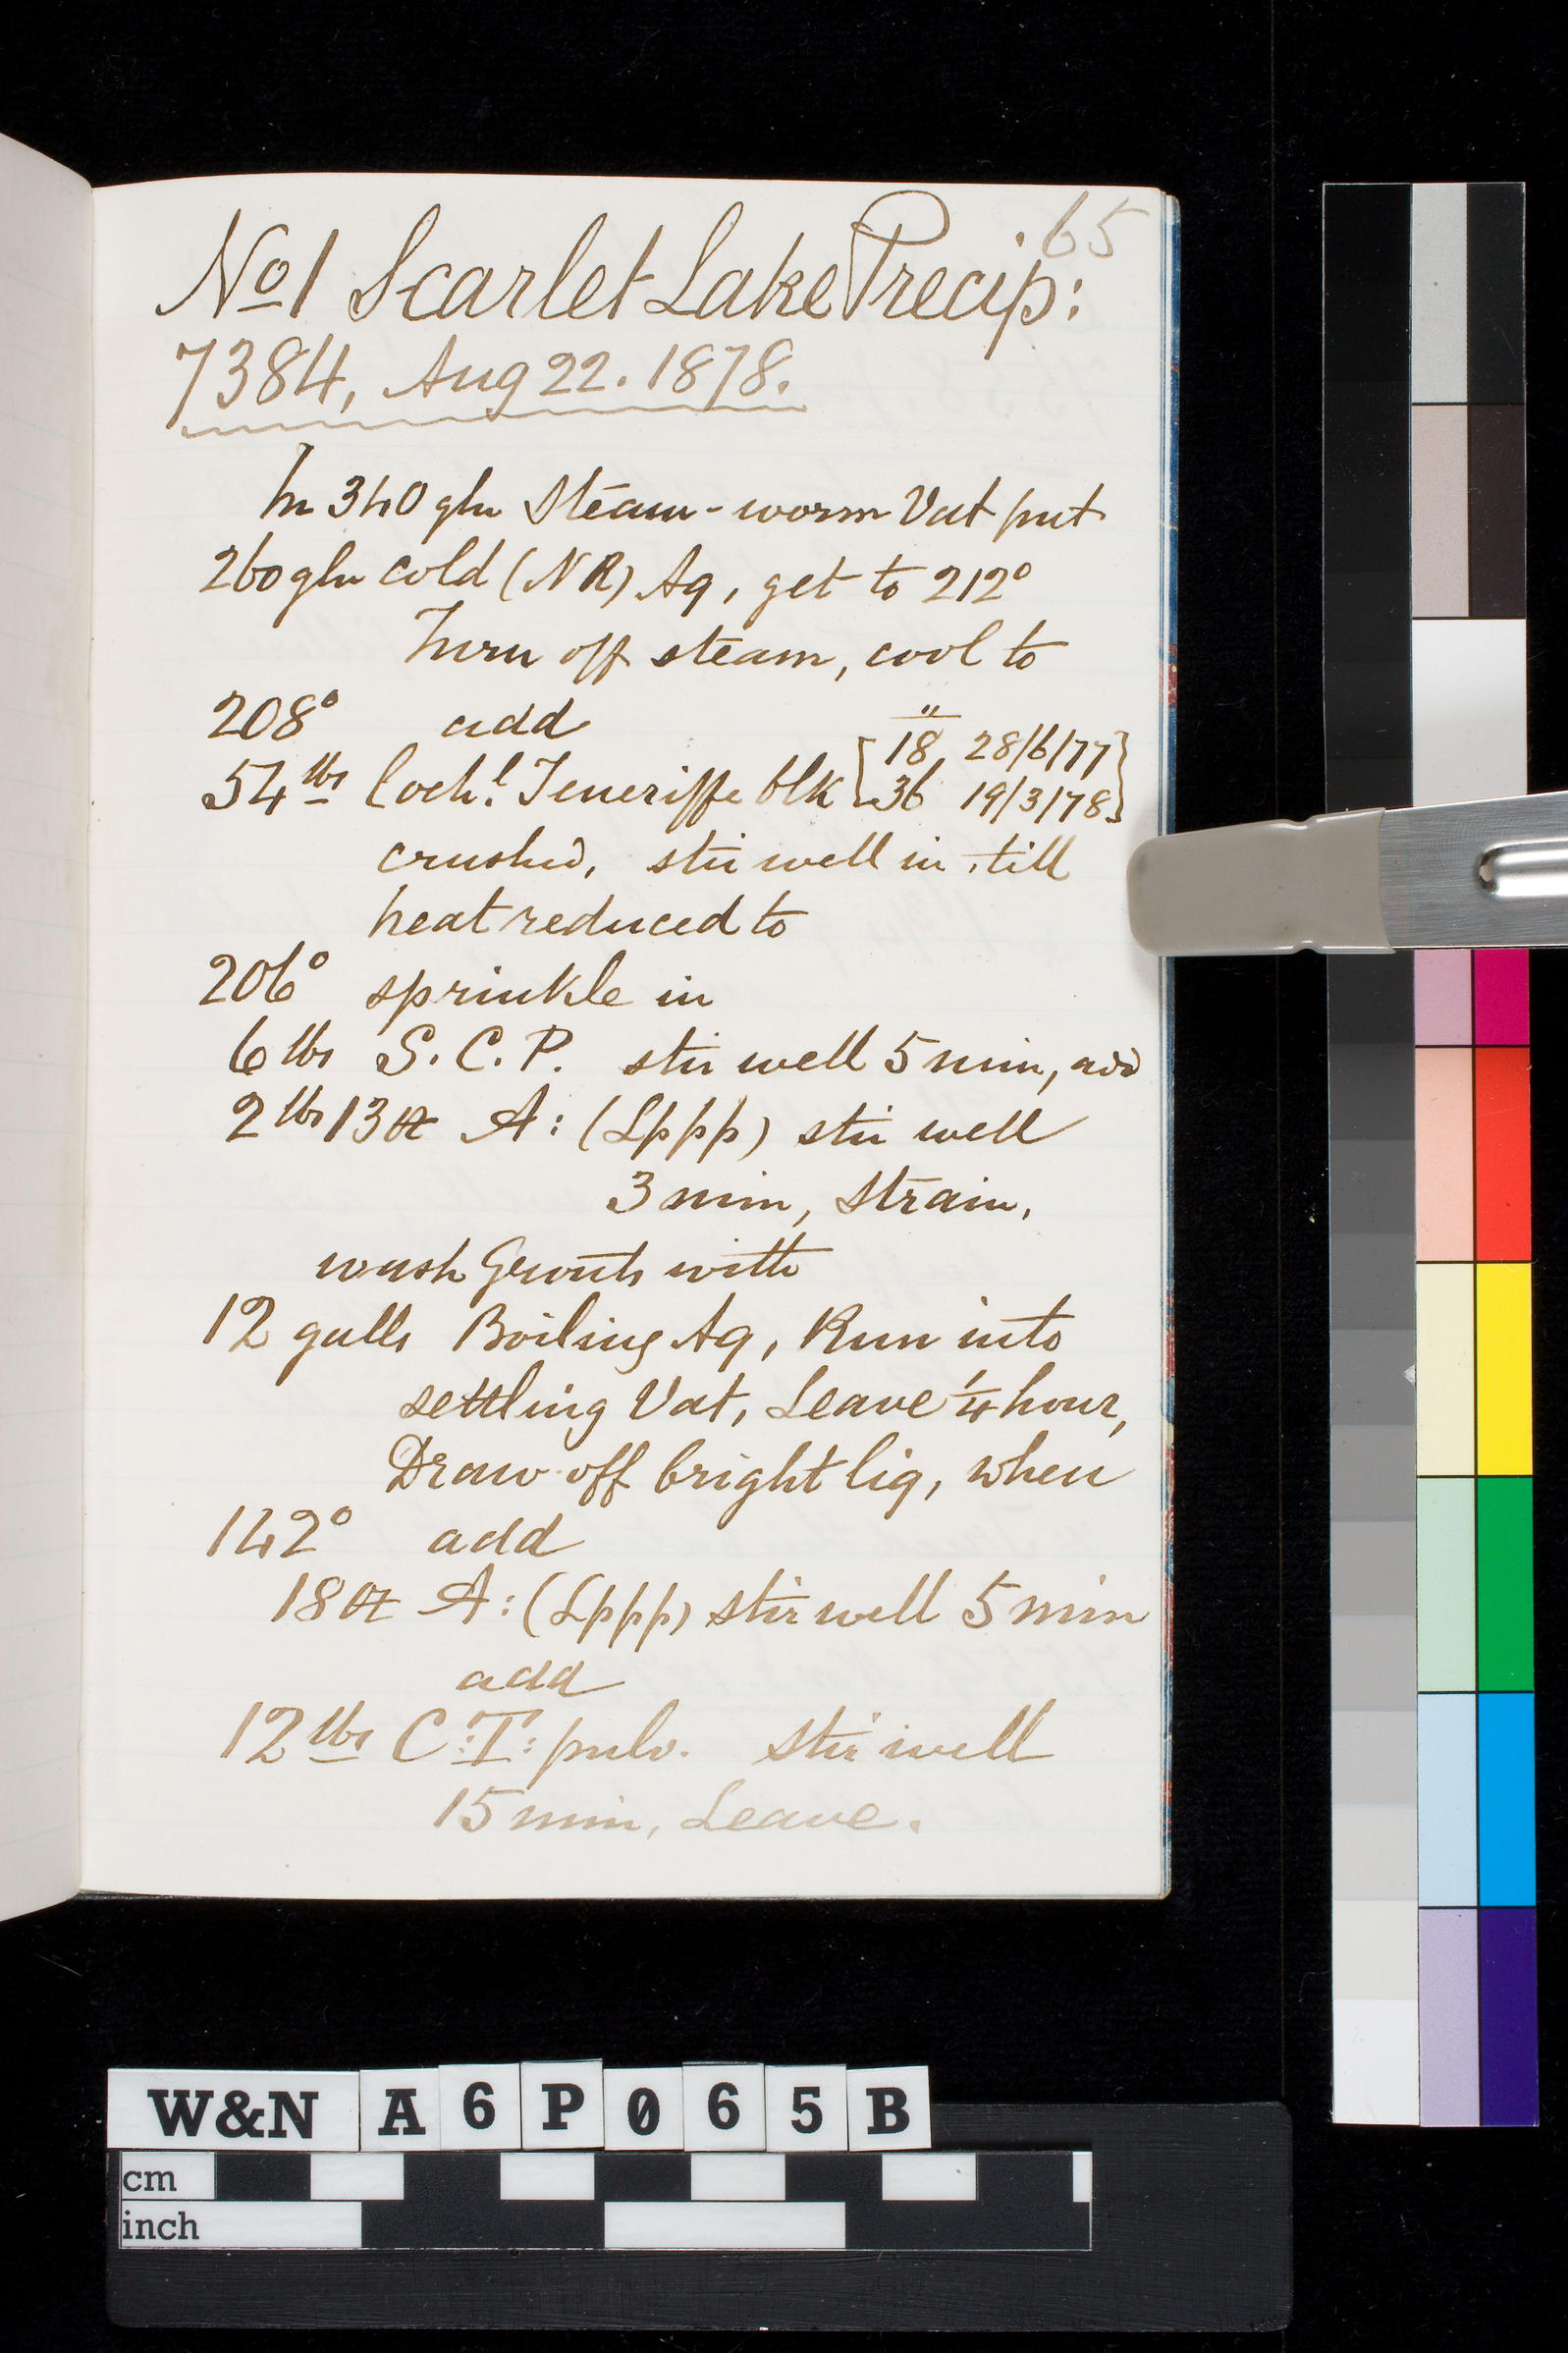 65
No 1 Scarlet Lake Precip:
7384, Aug 22. 1878.
In 340 gln Steam-worm Vat put
260 gln cold (NR) Aq, get to 212°
Turn off steam, cool to
208° add
54 lbs Coch.l Teneriffe blk [18, 28/6/77]
[36 19/3/78]
crushed, stir well in, till
heat reduced to
206° sprinkle in
6 lbs S.C.P. stir well 5 min, add
2 lbs 13 oz A: (Lppp) stir well
3 min, Strain,
wash Grouts with
12 galls Boiling Aq, Run into
settling Vat, Leave 1/4 hour,
Draw off bright liq, when
142° add
18 oz A: (Lppp) stir well 5 min
add
12 lbs C:T: pulv. Stir well
15 min, Leave.
W&N A6P065B
cm
inch